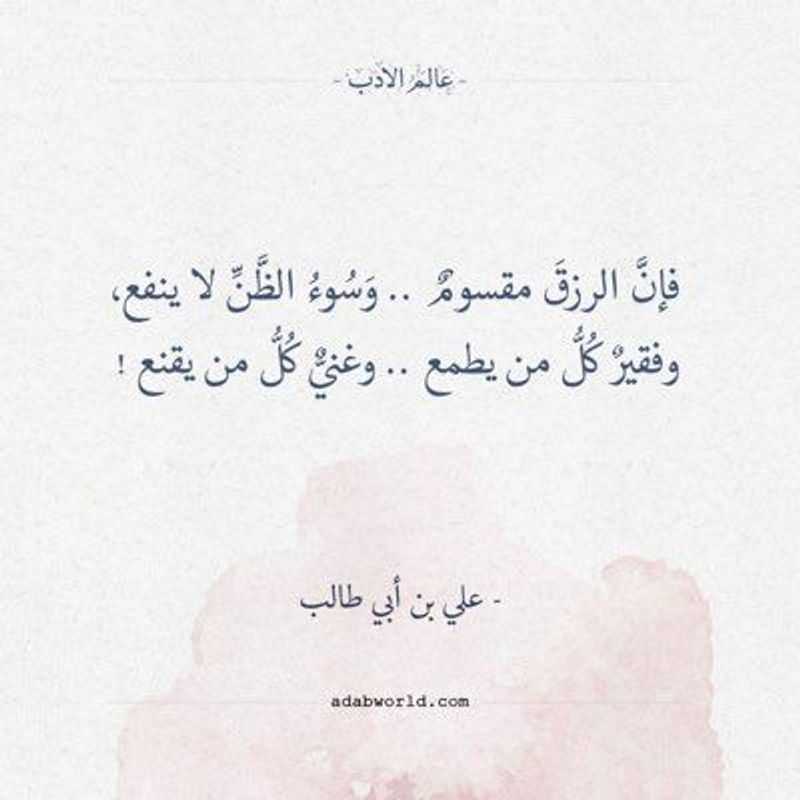 - عالم الأدب -
فإنَّ الرزقَ مقسومٌ .. وَسُوءُ الظَّنِّ لا ينفع،
وفقيرٌ كُلُّ من يطمع .. وغنيٌّ كُلُّ من يقنع !
- علي بن أبي طالب
adabworld.com